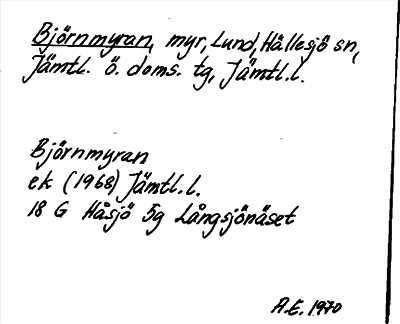 Björnmyran, myr, Lund, Hällesjö sn,
Jämtl. ö. doms. tg, Jämtl.l.
Björnmyran
ek (1968) Jämtl.l.
18 G Håsjö 5g Långsjönäset
A.E. 1970